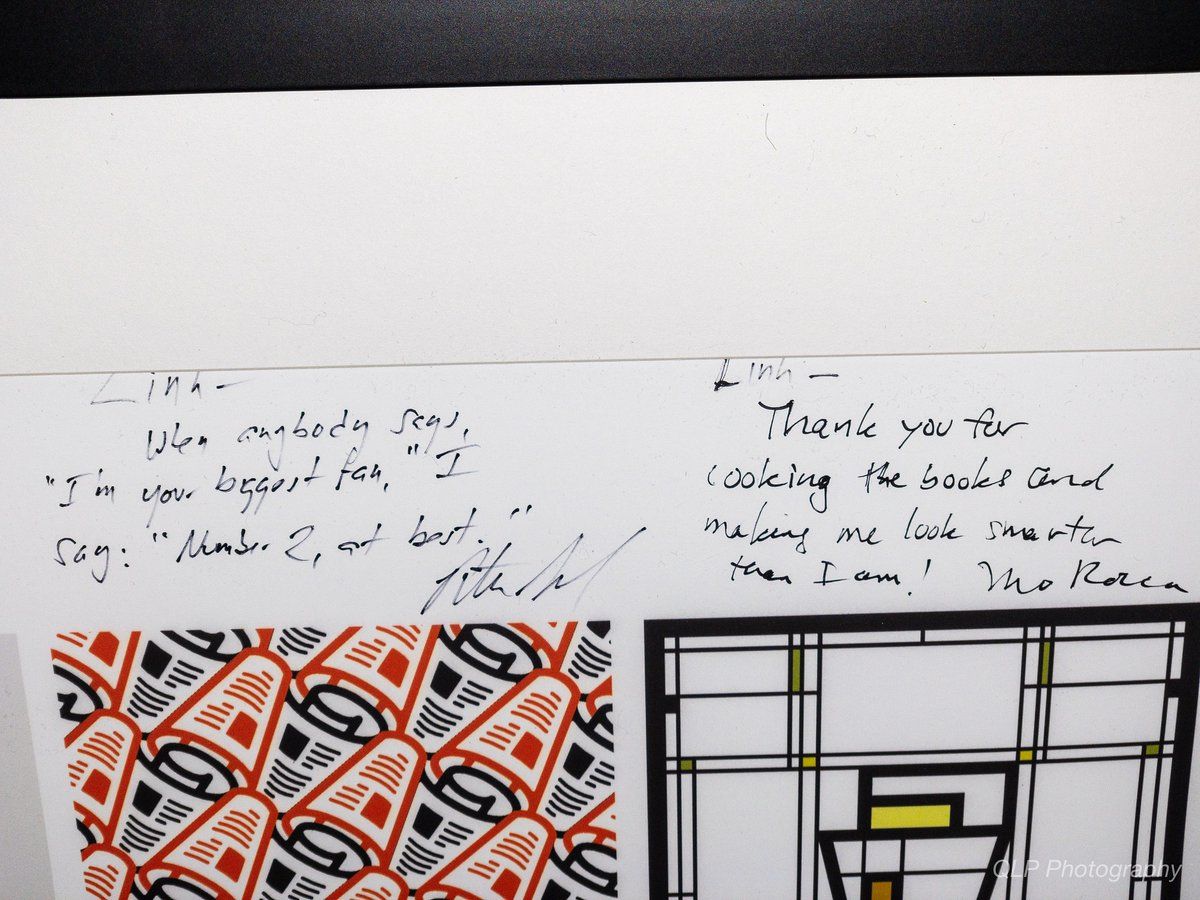 Linh-
When anybody says,
"I'm your biggest fan," I
say: "Number 2, at best."
Linh -
Thank you for
cooking the books and
making me look smarter
than I am! Mo Rocca
QLP Photography